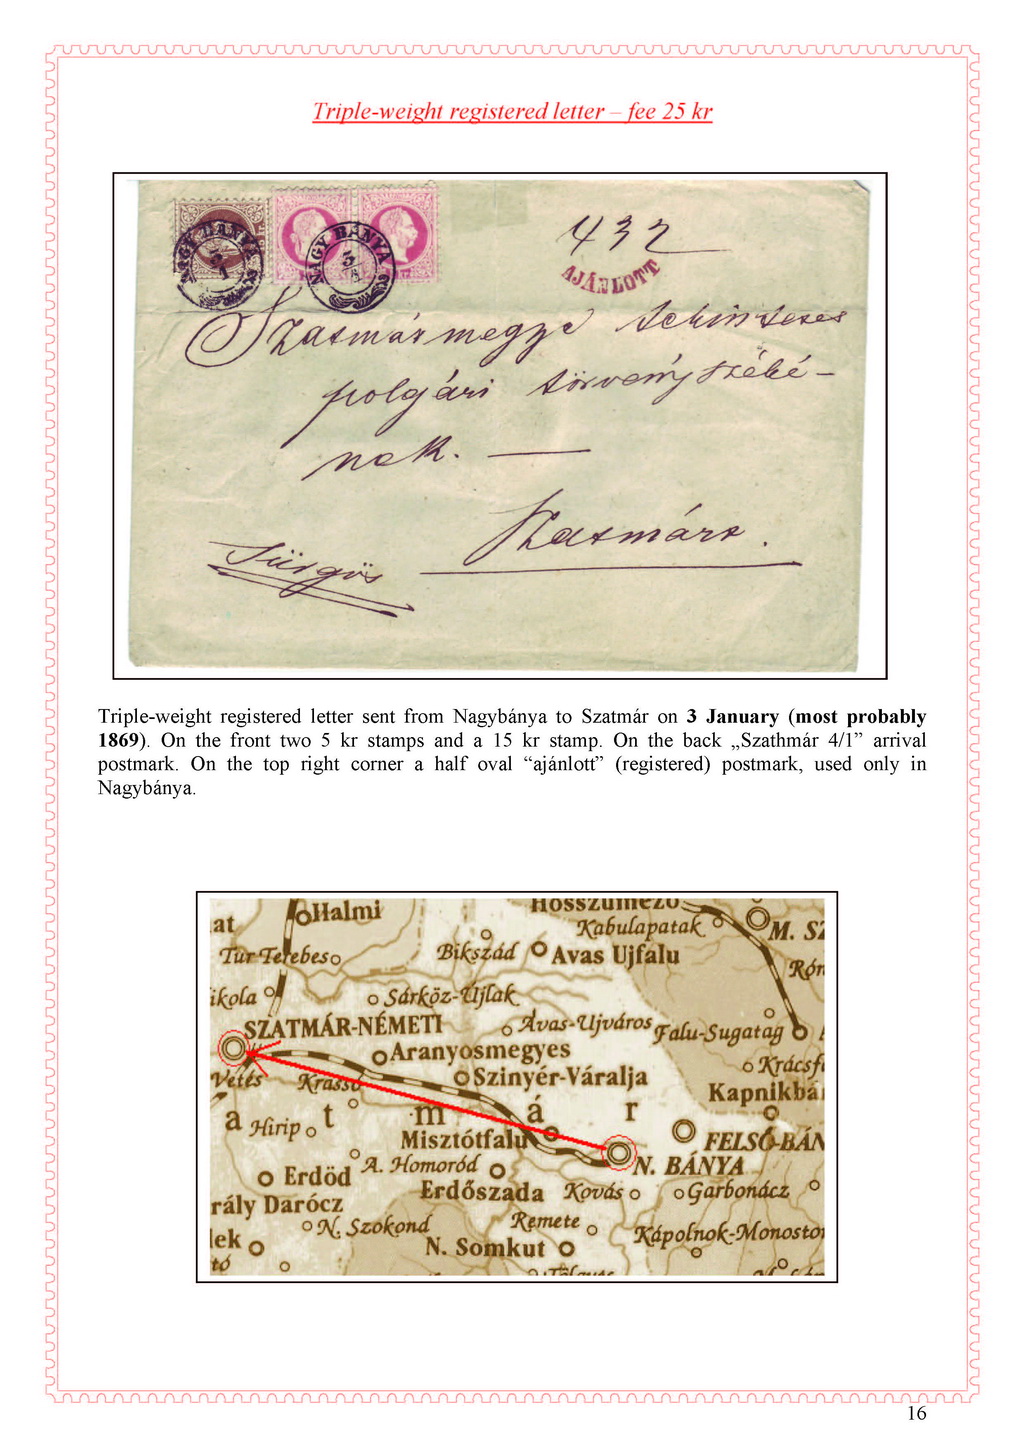 Triple-weight registered letter – fee 25 kr
NAGY BÁNYA
3/1
NAGY BÁNYA
3
432
AJÁNLOTT
Szatmármegye tekintetes
polgári törvényszéké-
nek. —
Szatmárt.
Sürgös
Triple-weight registered letter sent from Nagybánya to Szatmár on 3 January (most probably
1869). On the front two 5 kr stamps and a 15 kr stamp. On the back „Szathmár 4/1” arrival
postmark. On the top right corner a half oval “ajánlott” (registered) postmark, used only in
Nagybánya.
Halmi
Kabulapatak
M. SZ
Tur Terebes
Bikszád
Avas Ujfalu
Rón
ikola
Sárköz-Ujlak
SZATMÁR-NÉMETI
Avas-Ujváros
Falu-Sugatag
Aranyosmegyes
Krácsf
Vetés
Krassó
Szinyér-Váralja
Kapnikbá
a t m á r
Hirip
Misztótfalu
FELSŐ-BÁN
Erdöd
A. Homoród
N. BÁNYA
Erdőszada
Kovás
Garbonácz
rály Darócz
N. Szokond
Remete
Kápolnok-Monostor
lek
N. Somkut
tó
16